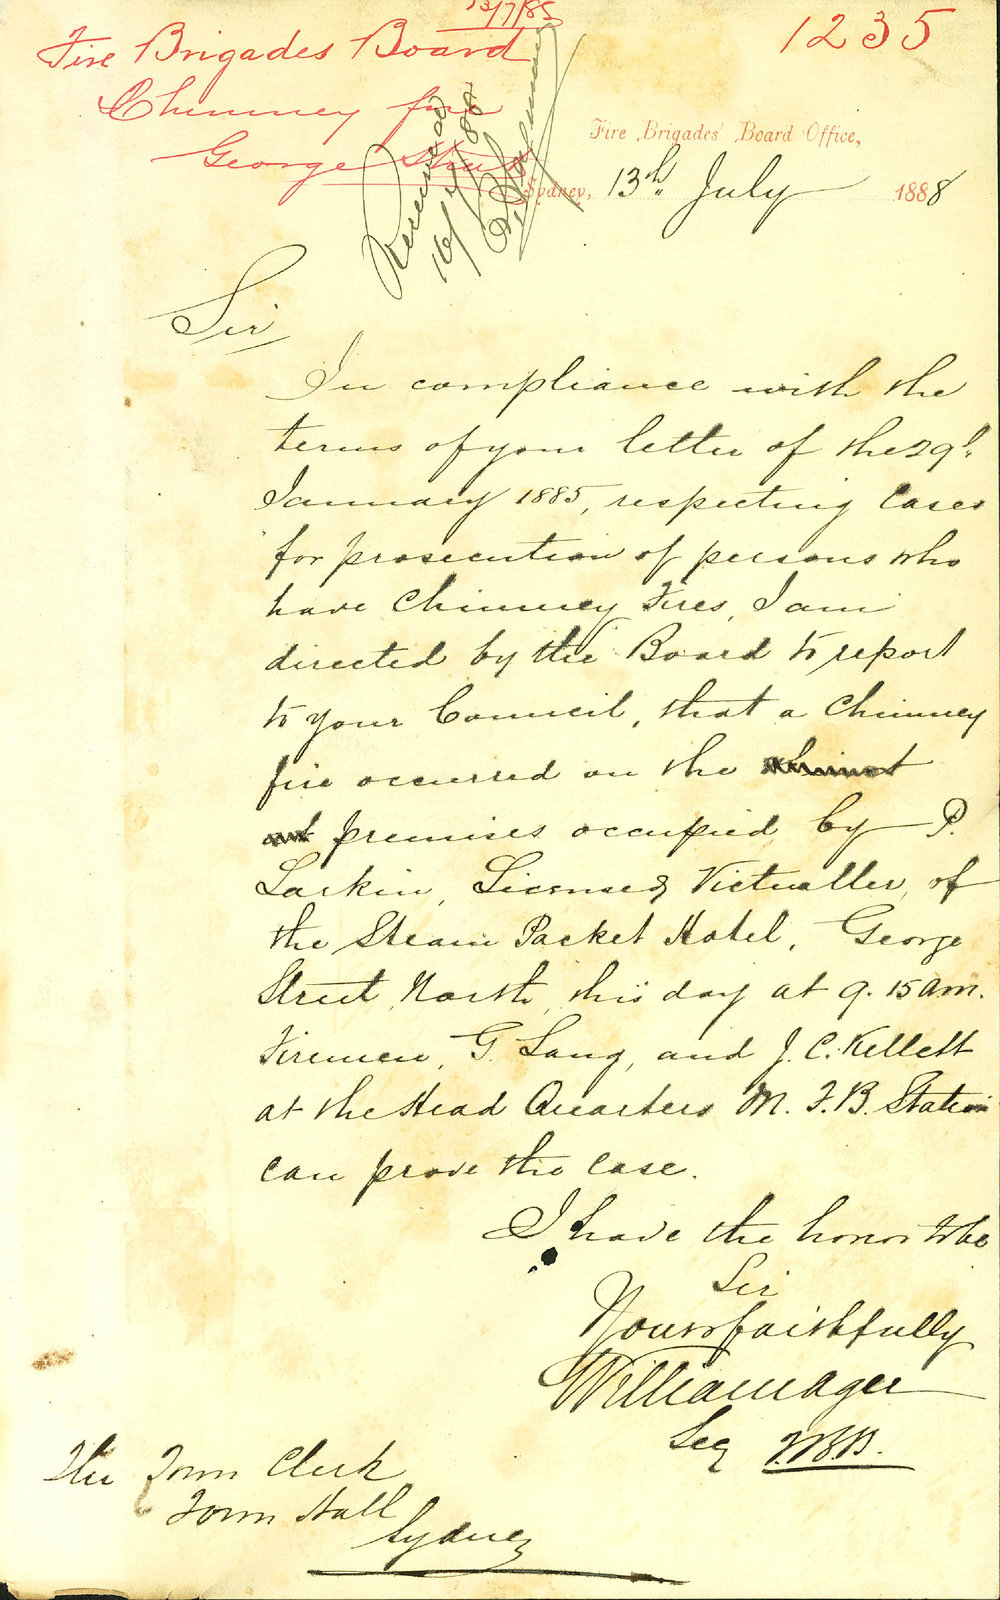 13/7/88
1235
Fire Brigades Board
Chimney fire
George Street
Received
16/7/88
Fire Brigades' Board Office,
Sydney, 13th July 1888
Sir
In compliance with the
terms of your letter of the 29th
January 1885, respecting cases
for prosecution of persons who
have Chimney Fires, I am
directed by the Board to report
to your Council, that a Chimney
fire occurred on the
premises occupied by P.
Larkin, Licensed Victualler, of
the Steam Packet Hotel, George
Street North, this day at 9.15 am.
Firemen, G. Lang, and J. C. Kellett
at the Head Quarters M. F. B. Station
can prove the case.
I have the honor to be
Sir
Yours faithfully
William Ager
Sec F.B.B.
The Town Clerk
Town Hall
Sydney